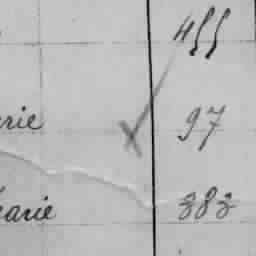 455
rie 97
arie 383